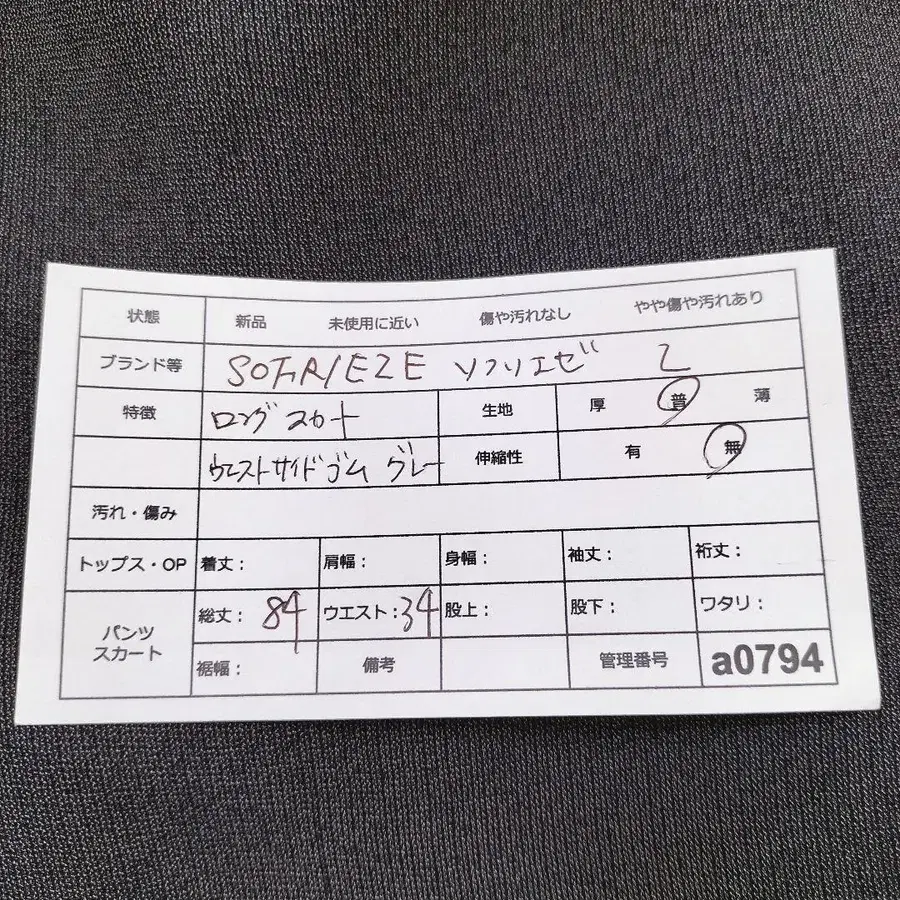 状態 新品 未使用に近い 傷や汚れなし やや傷や汚れあり
ブランド等 SOFRIEZE ソフリエゼ L
特徴 ロングスカート 生地 厚 普 薄
ウエストサイドゴム グレー 伸縮性 有 無
汚れ・傷み
トップス・OP 着丈: 肩幅: 身幅: 袖丈: 裄丈:
パンツ スカート 総丈: 84 ウエスト: 34 股上: 股下: ワタリ:
裾幅: 備考 管理番号 a0794